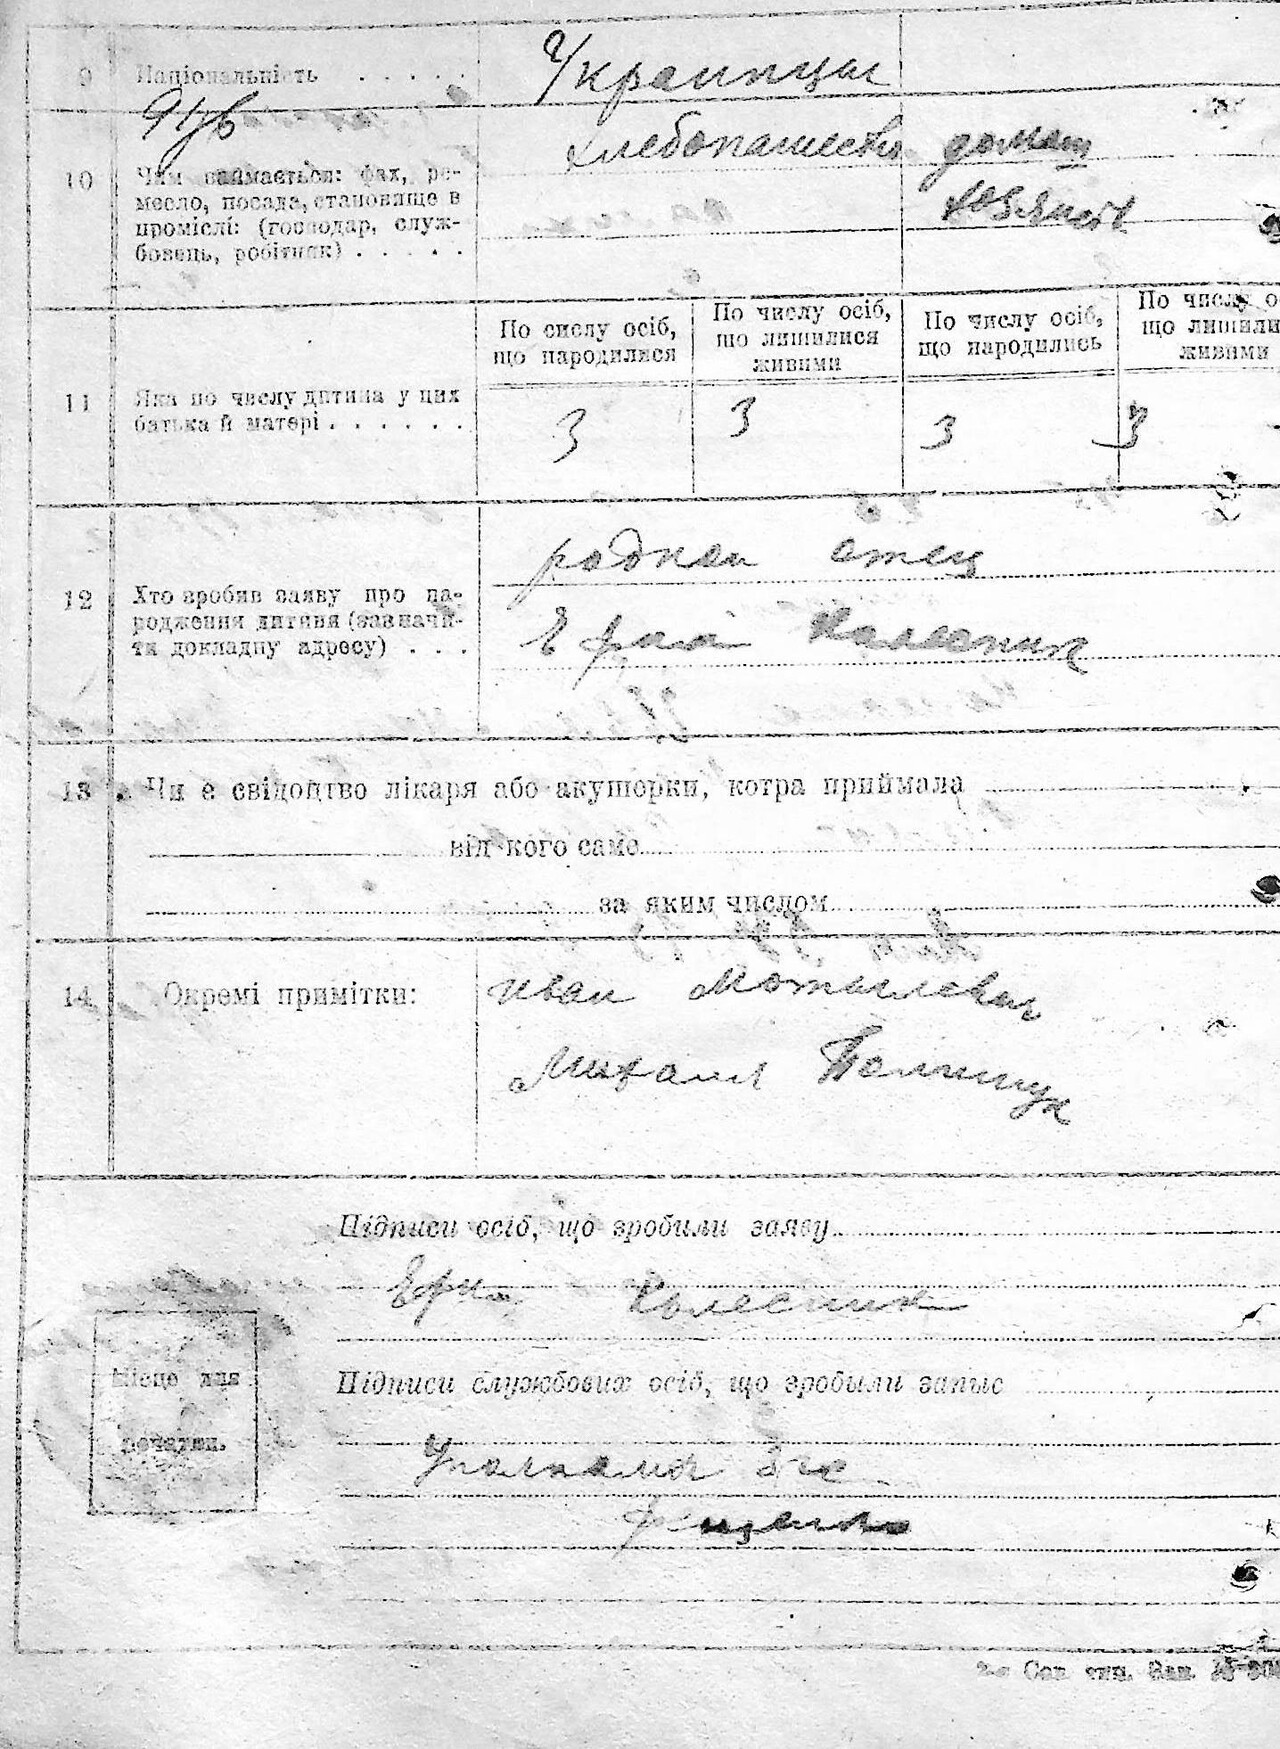 9 Національність . . . . . Украинцы
10 Чим займається: фах, ре-
месло, посада, становище в
промислі: (господар, служ-
бовець, робітник) . . . . .
хлебопашество домаш
хозяист
По числу осіб, що народилися
По числу осіб, що лишилися живими
По числу осіб, що народились
По числу о
що лишили
живими
11 Яка по числу дитина у цих
батька й матері . . . . . .
3 3 3 3
12 Хто зробив заяву про на-
родження дитини (зазначи-
ти докладну адресу) . . .
родной отец
Колесник
13 Чи є свідоцтво лікаря або акушорки, котра приймала
від кого саме
за яким числом
14 Окремі примітки:
Иван
Михаил Полищук
Підписи осіб, що зробили заяву
Колесник
Підписи службових осіб, що зробыли запыс
Місце для
печатки.